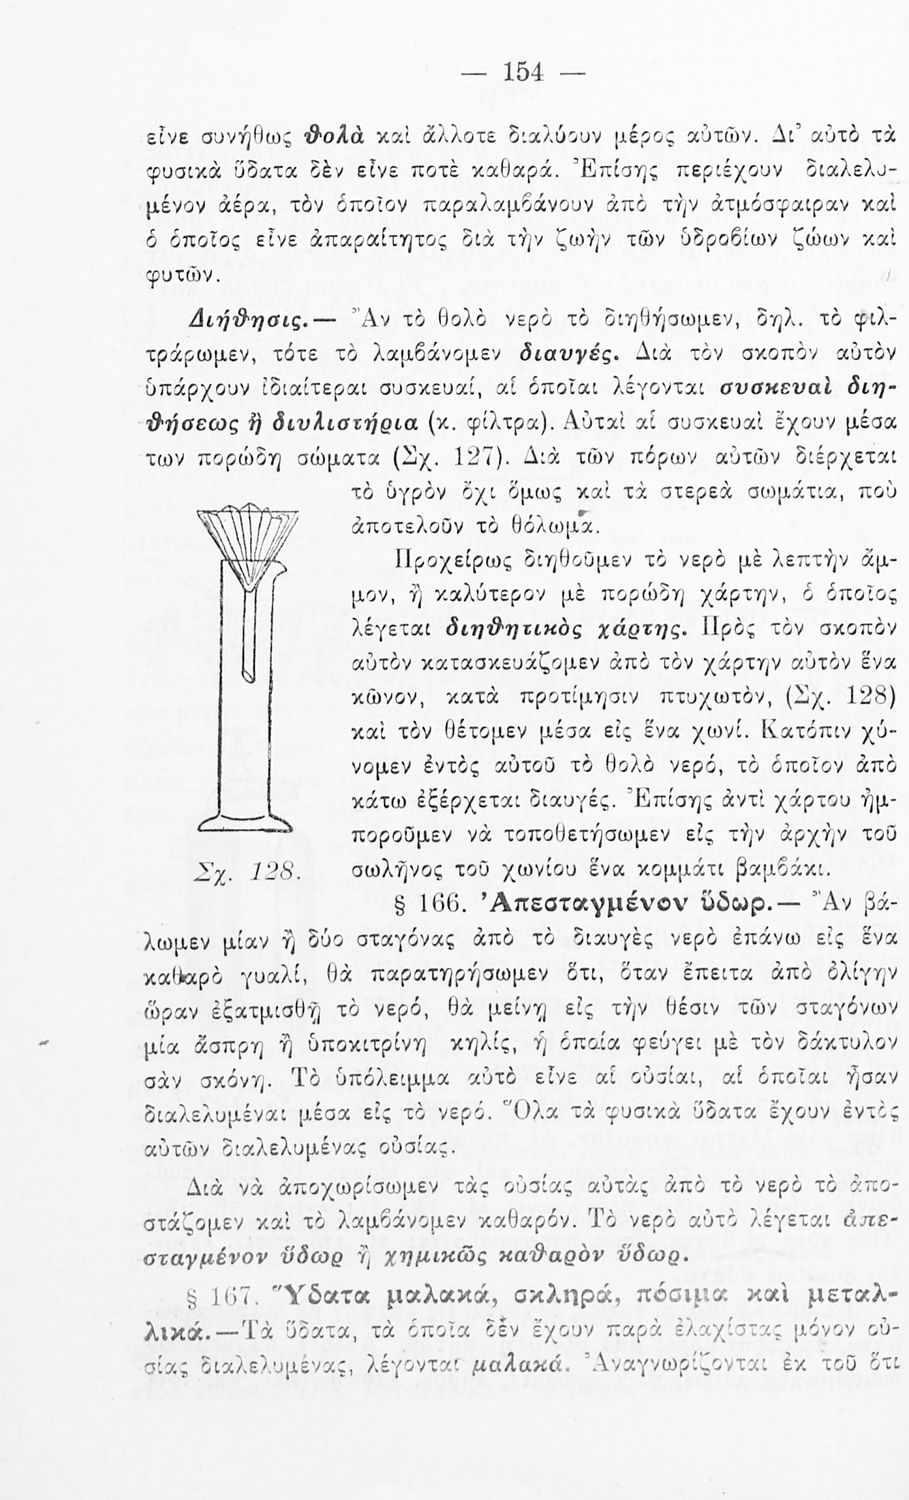 — 154 —
εἶνε συνήθως θολὰ καὶ ἄλλοτε διαλύουν μέρος αὐτῶν. Δι’ αὐτὸ τὰ
φυσικὰ ὕδατα δὲν εἶνε ποτὲ καθαρά. Ἐπίσης περιέχουν διαλελυ-
μένον ἀέρα, τὸν ὁποῖον παραλαμβάνουν ἀπὸ τὴν ἀτμόσφαιραν καὶ
ὁ ὁποῖος εἶνε ἀπαραίτητος διὰ τὴν ζωὴν τῶν ὑδροβίων ζώων καὶ
φυτῶν.
Διήθησις.— Ἂν τὸ θολὸ νερὸ τὸ διηθήσωμεν, δηλ. τὸ φιλ-
τράρωμεν, τότε τὸ λαμβάνομεν διαυγές. Διὰ τὸν σκοπὸν αὐτὸν
ὑπάρχουν ἰδιαίτεραι συσκευαί, αἱ ὁποῖαι λέγονται συσκευαὶ διη-
θήσεως ἢ διυλιστήρια (κ. φίλτρα). Αὐταὶ αἱ συσκευαὶ ἔχουν μέσα
των πορώδη σώματα (Σχ. 127). Διὰ τῶν πόρων αὐτῶν διέρχεται
τὸ ὑγρὸν ὄχι ὅμως καὶ τὰ στερεὰ σωμάτια, ποὺ
ἀποτελοῦν τὸ θόλωμα.
Προχείρως διηθοῦμεν τὸ νερὸ μὲ λεπτὴν ἄμ-
μον, ἢ καλύτερον μὲ πορώδη χάρτην, ὁ ὁποῖος
λέγεται διηθητικὸς χάρτης. Πρὸς τὸν σκοπὸν
αὐτὸν κατασκευάζομεν ἀπὸ τὸν χάρτην αὐτὸν ἕνα
κῶνον, κατὰ προτίμησιν πτυχωτὸν, (Σχ. 128)
καὶ τὸν θέτομεν μέσα εἰς ἕνα χωνί. Κατόπιν χύ-
νομεν ἐντὸς αὐτοῦ τὸ θολὸ νερό, τὸ ὁποῖον ἀπὸ
κάτω ἐξέρχεται διαυγές. Ἐπίσης ἀντὶ χάρτου ἠμ-
ποροῦμεν νὰ τοποθετήσωμεν εἰς τὴν ἀρχὴν τοῦ
σωλῆνος τοῦ χωνίου ἕνα κομμάτι βαμβάκι.
Σχ. 128.
§ 166. Ἀπεσταγμένον ὕδωρ.— Ἂν βά-
λωμεν μίαν ἢ δύο σταγόνας ἀπὸ τὸ διαυγὲς νερὸ ἐπάνω εἰς ἕνα
καθαρὸ γυαλί, θὰ παρατηρήσωμεν ὅτι, ὅταν ἔπειτα ἀπὸ ὀλίγην
ὥραν ἐξατμισθῇ τὸ νερό, θὰ μείνῃ εἰς τὴν θέσιν τῶν σταγόνων
μία ἄσπρη ἢ ὑποκιτρίνη κηλίς, ἡ ὁποία φεύγει μὲ τὸν δάκτυλον
σὰν σκόνη. Τὸ ὑπόλειμμα αὐτὸ εἶνε αἱ οὐσίαι, αἱ ὁποῖαι ἦσαν
διαλελυμέναι μέσα εἰς τὸ νερό. Ὅλα τὰ φυσικὰ ὕδατα ἔχουν ἐντὸς
αὐτῶν διαλελυμένας οὐσίας.
Διὰ νὰ ἀποχωρίσωμεν τὰς οὐσίας αὐτὰς ἀπὸ τὸ νερὸ τὸ ἀπο-
στάζομεν καὶ τὸ λαμβάνομεν καθαρόν. Τὸ νερὸ αὐτὸ λέγεται ἀπε-
σταγμένον ὕδωρ ἢ χημικῶς καθαρὸν ὕδωρ.
§ 167. Ὕδατα μαλακά, σκληρά, πόσιμα καὶ μεταλ-
λικά.—Τὰ ὕδατα, τὰ ὁποῖα δὲν ἔχουν παρὰ ἐλαχίστας μόνον οὐ-
σίας διαλελυμένας, λέγονται μαλακά. Ἀναγνωρίζονται ἐκ τοῦ ὅτι